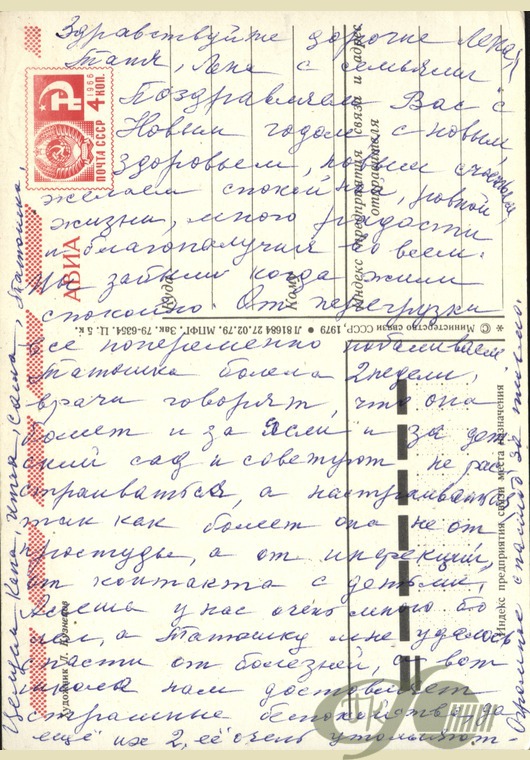 Здравствуйте дорогие Лена,
Таня, Лена с семьями
Поздравляем Вас с
Новым годом, с новым
здоровьем, новым счастьем
желаем спокойной, ровной
жизни, много радости
и благополучия во всем.
Мы забыли когда жили
спокойно. От перегрузки
все попеременно побаливаем
Таташка болела 2 недели,
врачи говорят, что она
болеет и за ясли и за дет
ский сад и советуют не рас
страиваться, а настраиваться
так как болеет она не от
простуды, а от инфекций,
от контакта с детьми,
Алеша у нас очень много бо
лел, а Таташку мне удалось
спасти от болезней, а вот
школа нам доставляет
страшные беспокойства, да
ещё их 2, её очень утомляют.
Огромное спасибо за письмо.
Целуем Саша, Таташка.
ПОЧТА СССР
1966
4 КОП.
АВИА
Куда
Кому
Индекс предприятия связи и адрес
отправителя
© Министерство связи СССР, 1979 • Л 81684 27.02.79. МПФГ. Зак. 79-6354. Ц. 5 к.
Индекс предприятия связи места назначения
Художник Л. Кузнецов